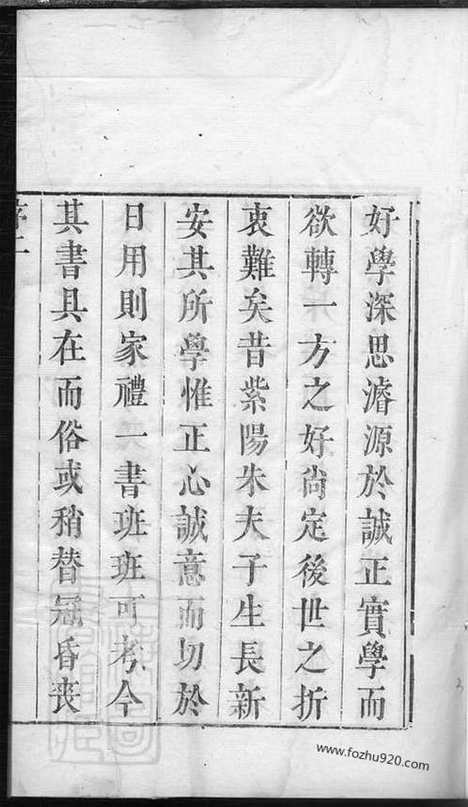 好學深思濬源於誠正實學而
欲轉一方之好尚定後世之折
衷難矣昔紫陽朱夫子生長新
安其所學惟正心誠意而切於
日用則家禮一書班班可考今
其書具在而俗或稍替冠昏喪
www.fozhu920.com